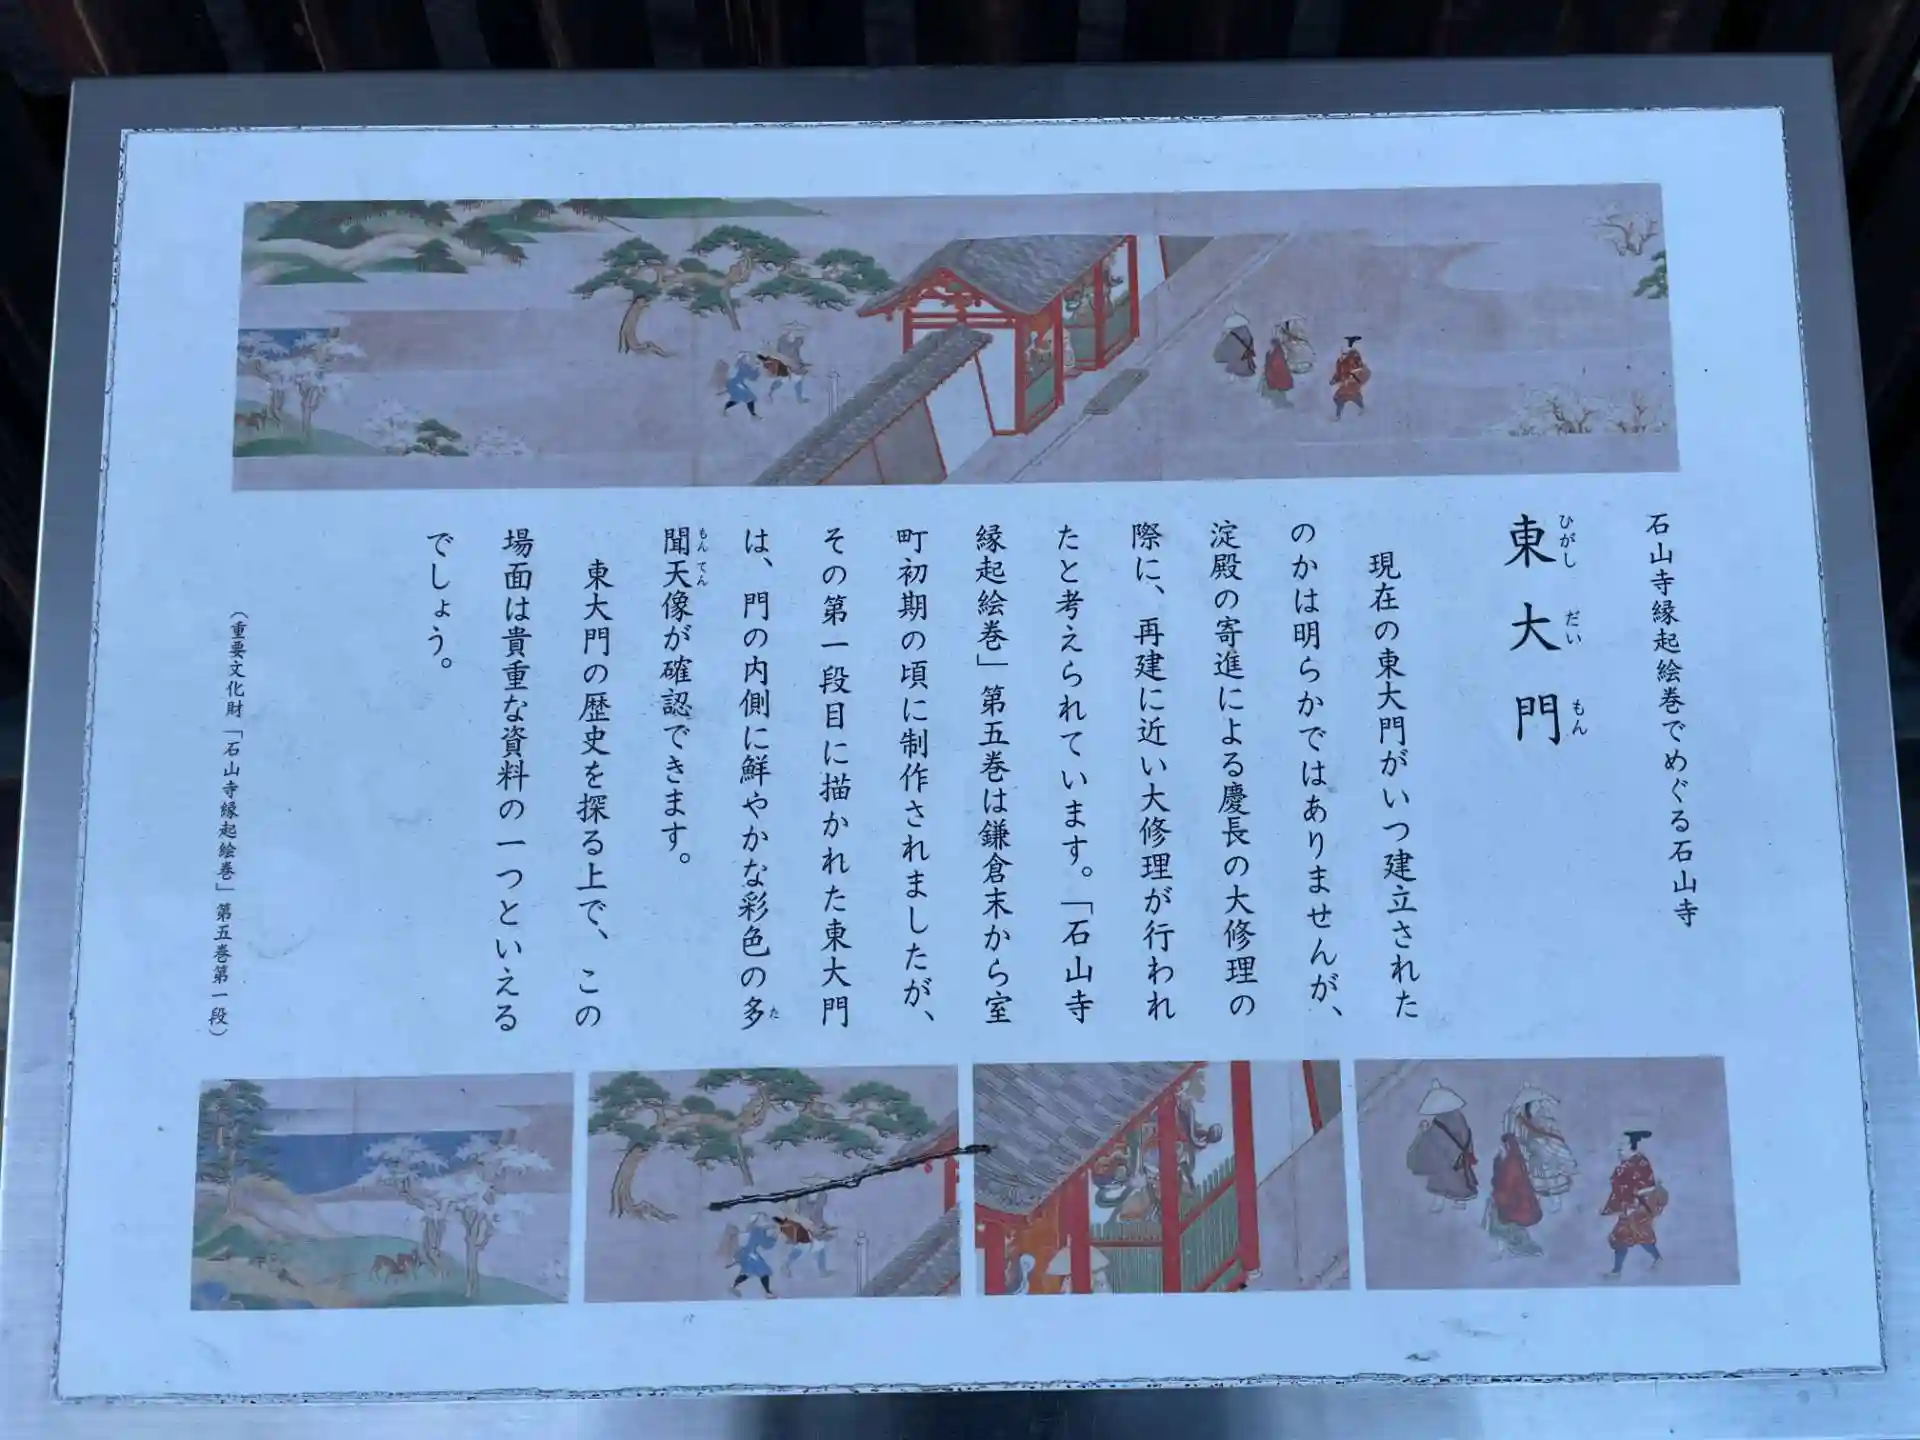 石山寺縁起絵巻でめぐる石山寺
東大門
ひがし だい もん
現在の東大門がいつ建立された
のかは明らかではありませんが、
淀殿の寄進による慶長の大修理の
際に、再建に近い大修理が行われ
たと考えられています。「石山寺
縁起絵巻」第五巻は鎌倉末から室
町初期の頃に制作されましたが、
その第一段目に描かれた東大門
は、門の内側に鮮やかな彩色の多
た
聞天像が確認できます。
もんてん
東大門の歴史を探る上で、この
場面は貴重な資料の一つといえる
でしょう。
（重要文化財「石山寺縁起絵巻」第五巻第一段）